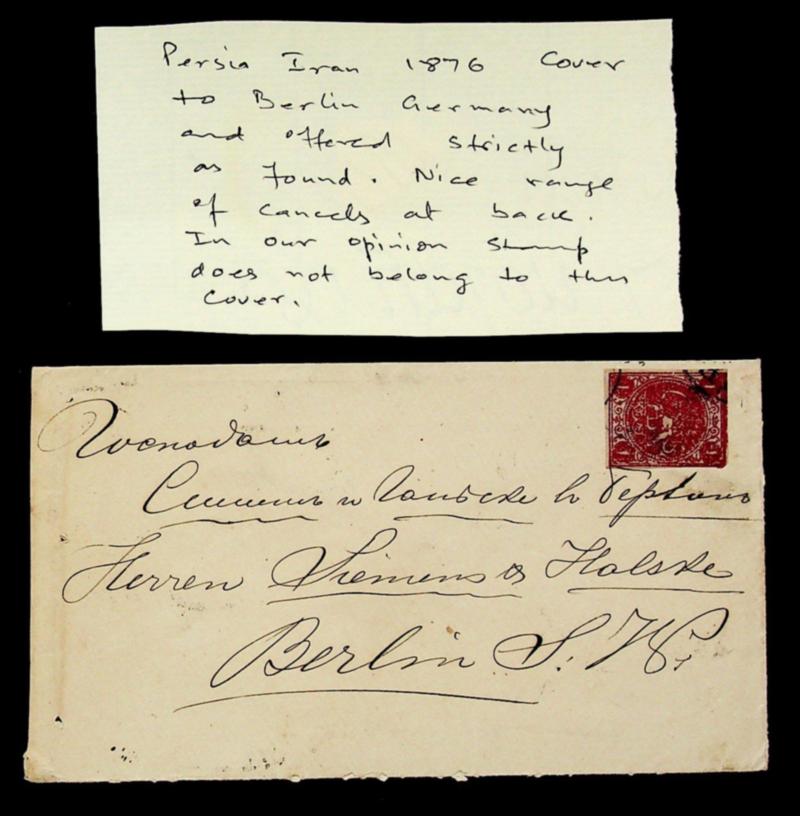 Persia Iran 1876 Cover
to Berlin Germany
and offered strictly
as found. Nice range
of cancels at back.
In our opinion stamp
does not belong to this
cover.
1 1
1 1
Господамъ
Сименсъ и Гальске въ Берлинъ
Herren Siemens & Halske
Berlin S. W.